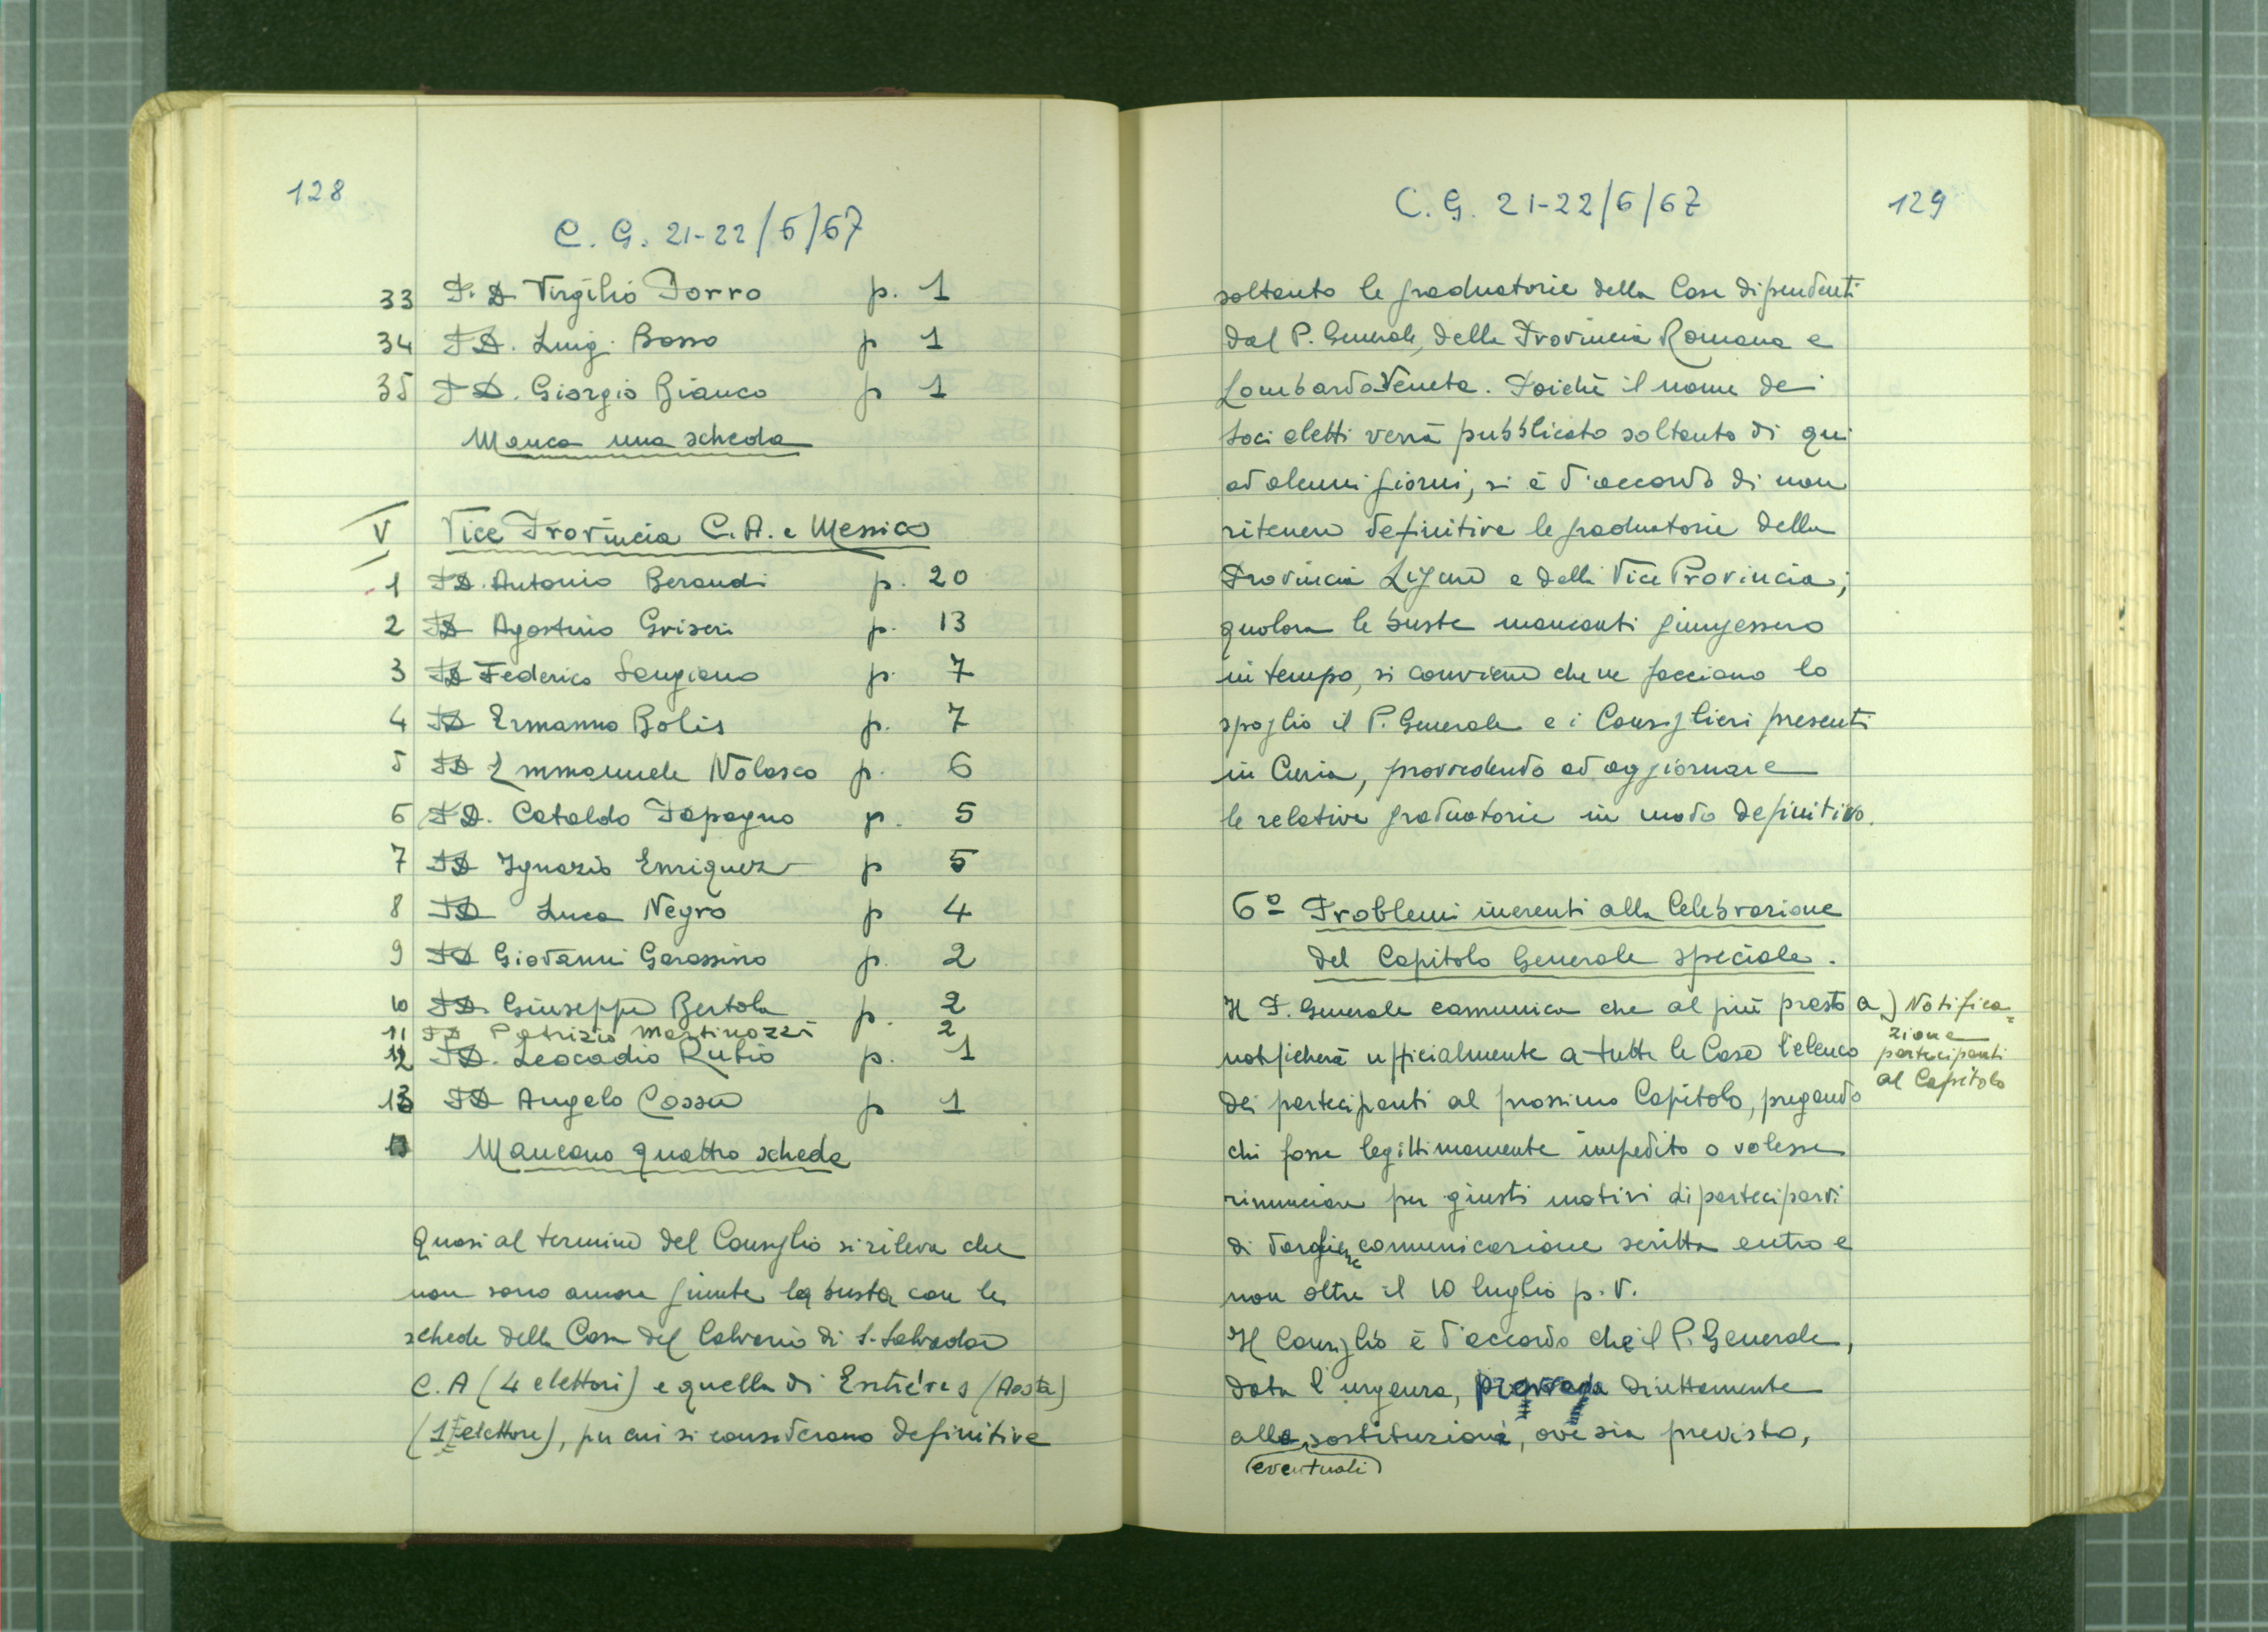 128
C. G. 21-22/6/67
33 P. D. Virgilio Porro p. 1
34 PD. Luigi Bosso p 1
35 PD. Giorgio Bianco p 1
Manca una scheda
V Vice Provincia C.A. e Messico
1 PD. Antonio Beraudi p. 20
2 PD Agostino Griseri p. 13
3 PD Federico Sangiano p. 7
4 PD Ermanno Bolis p. 7
5 PD Emmanuele Nolasco p. 6
6 PD. Cataldo Papagno p. 5
7 PD Ignazio Enriquez p 5
8 PD Luca Negro p 4
9 PD Giovanni Garassino p. 2
10 PD. Giuseppe Bertola p. 2
11 PD Patrizio Martinozzi 2
12 PD. Leocadio Rubio p. 1
13 PD Angelo Cossu p 1
Mancano quattro schede
Quasi al termine del Consiglio si rileva che
non sono ancora giunte la busta con le
schede della Casa del Calvario di S. Salvador
C.A (4 elettori) e quella di Entrèves (Aosta)
(1 elettore), per cui si considerano definitive
C. G. 21-22/6/67
129
soltanto le graduatorie della Case dipendenti
dal P. Generale, della Provincia Romana e
LombardoVeneta. Poichè il nome dei
Soci eletti verrà pubblicato soltanto di qui
ad alcuni giorni, si è d'accordo di non
ritenere definitive le graduatorie della
Provincia Ligure e della Vice Provincia;
qualora le buste mancanti giungessero
in tempo, si conviene che ne facciano lo
spoglio il P. Generale e i Consiglieri presenti
in Curia, provvedendo ad aggiornare
le relative graduatorie in modo definitivo.
6º Problemi inerenti alla Celebrazione
del Capitolo Generale speciale.
Il P. Generale comunica che al più presto
notificherà ufficialmente a tutte le Case l'elenco
dei partecipanti al prossimo Capitolo, pregando
chi fosse legittimamente impedito o volesse
rinunciare per giusti motivi di parteciparvi
di dargliene comunicazione scritta entro e
non oltre il 10 luglio p. v.
Il Consiglio è d'accordo che il P. Generale,
data l'urgenza, provveda direttamente
alle sostituzioni, ove sia previsto,
eventuali
a) Notifica=
zione
partecipanti
al Capitolo